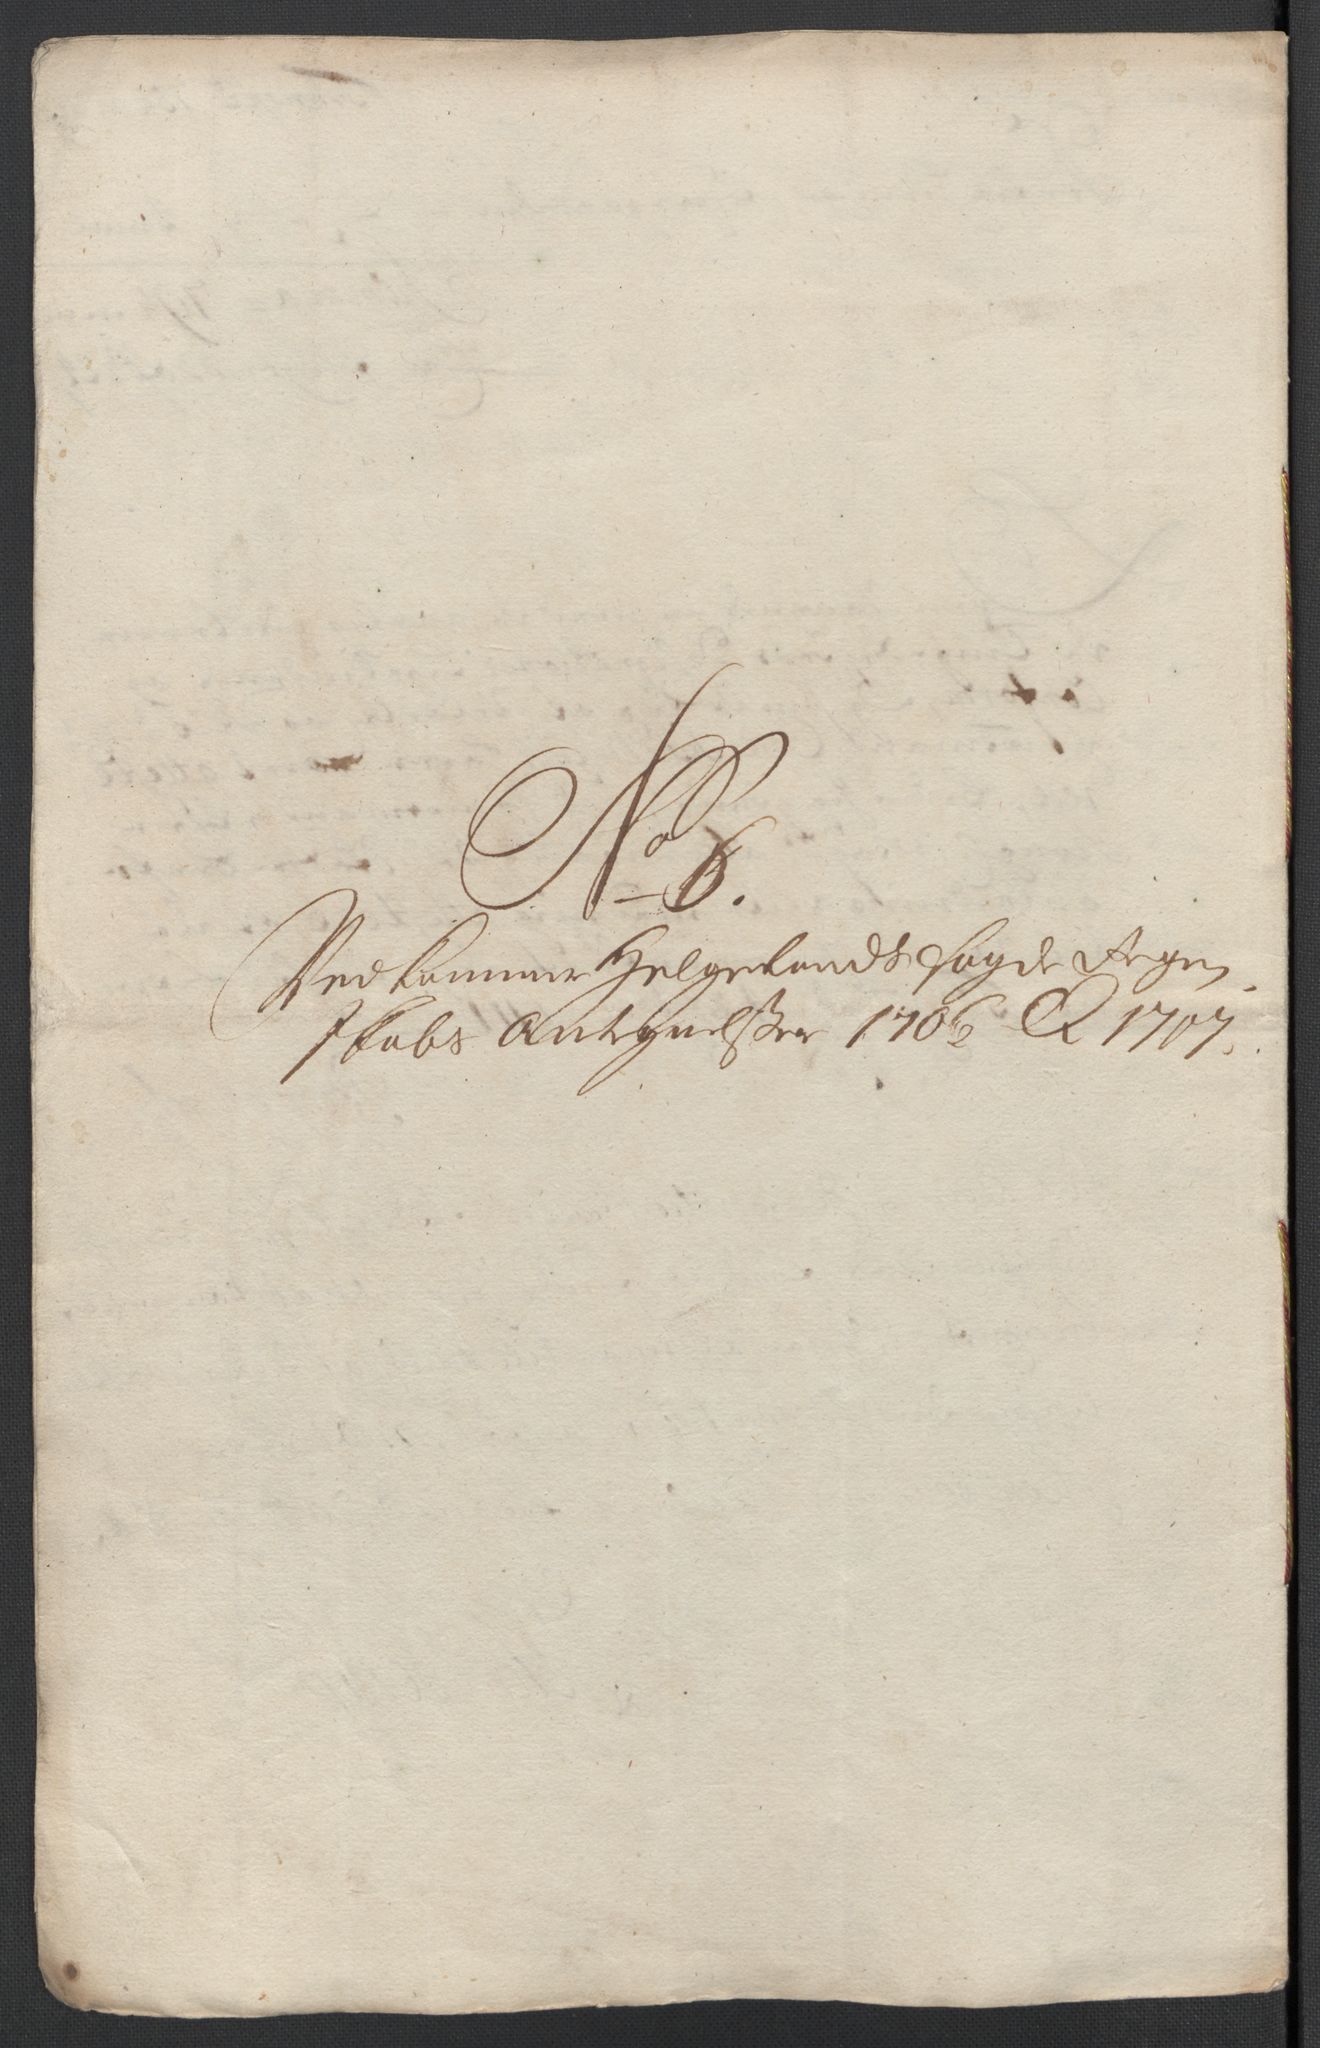 No 6.
Vedkommer Helgelands fogde Regen
skabs Antegnelsser 1706 & 1707.